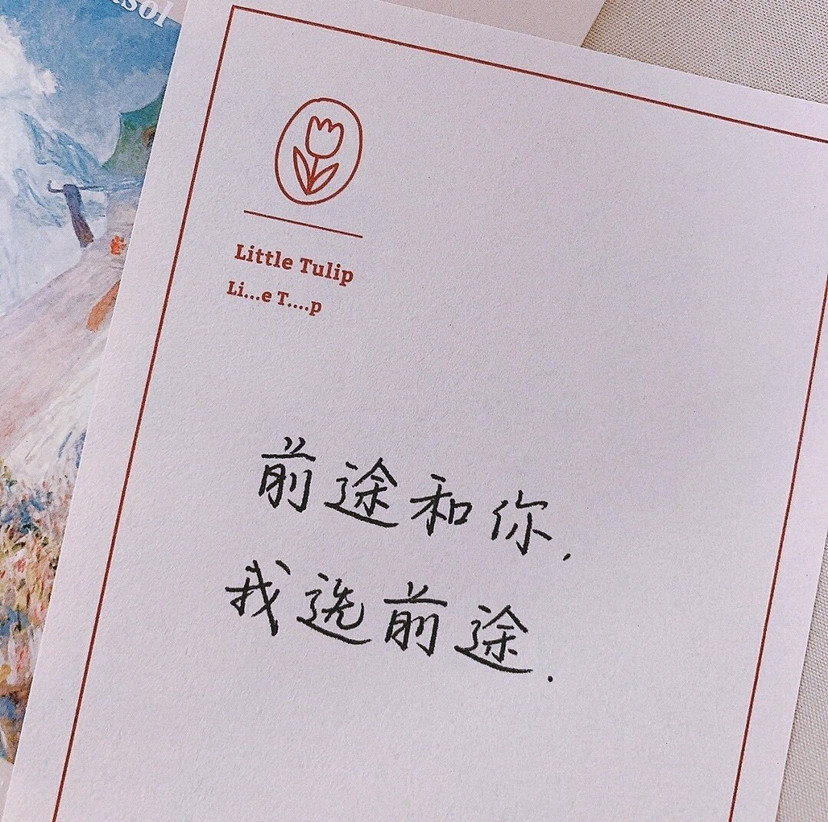 Little Tulip
Li...e T....p
前途和你,
我选前途.